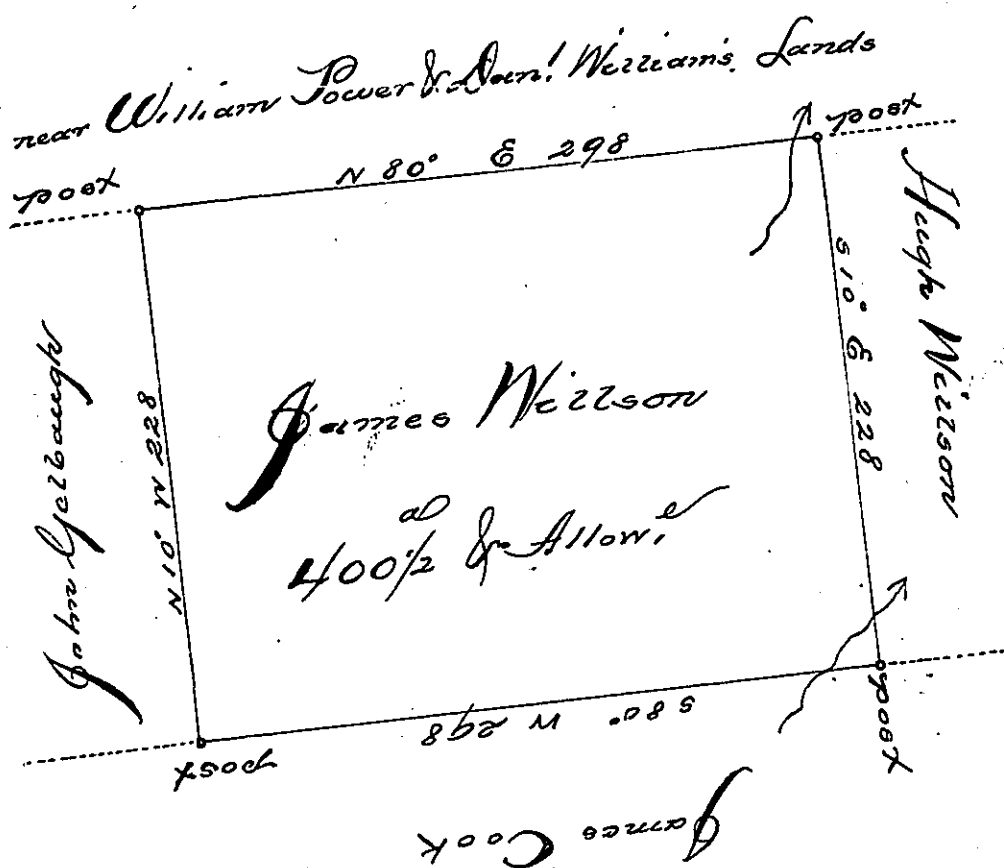 near William Power & Danl. William's Lands
post
N 80° E 298
post
Hugh Willson
S 10° E 228
John Gelbaugh
N 10° W 228
James Willson
a
400 1/2 & Allowe
S 80° W 298
post
post
James Cook